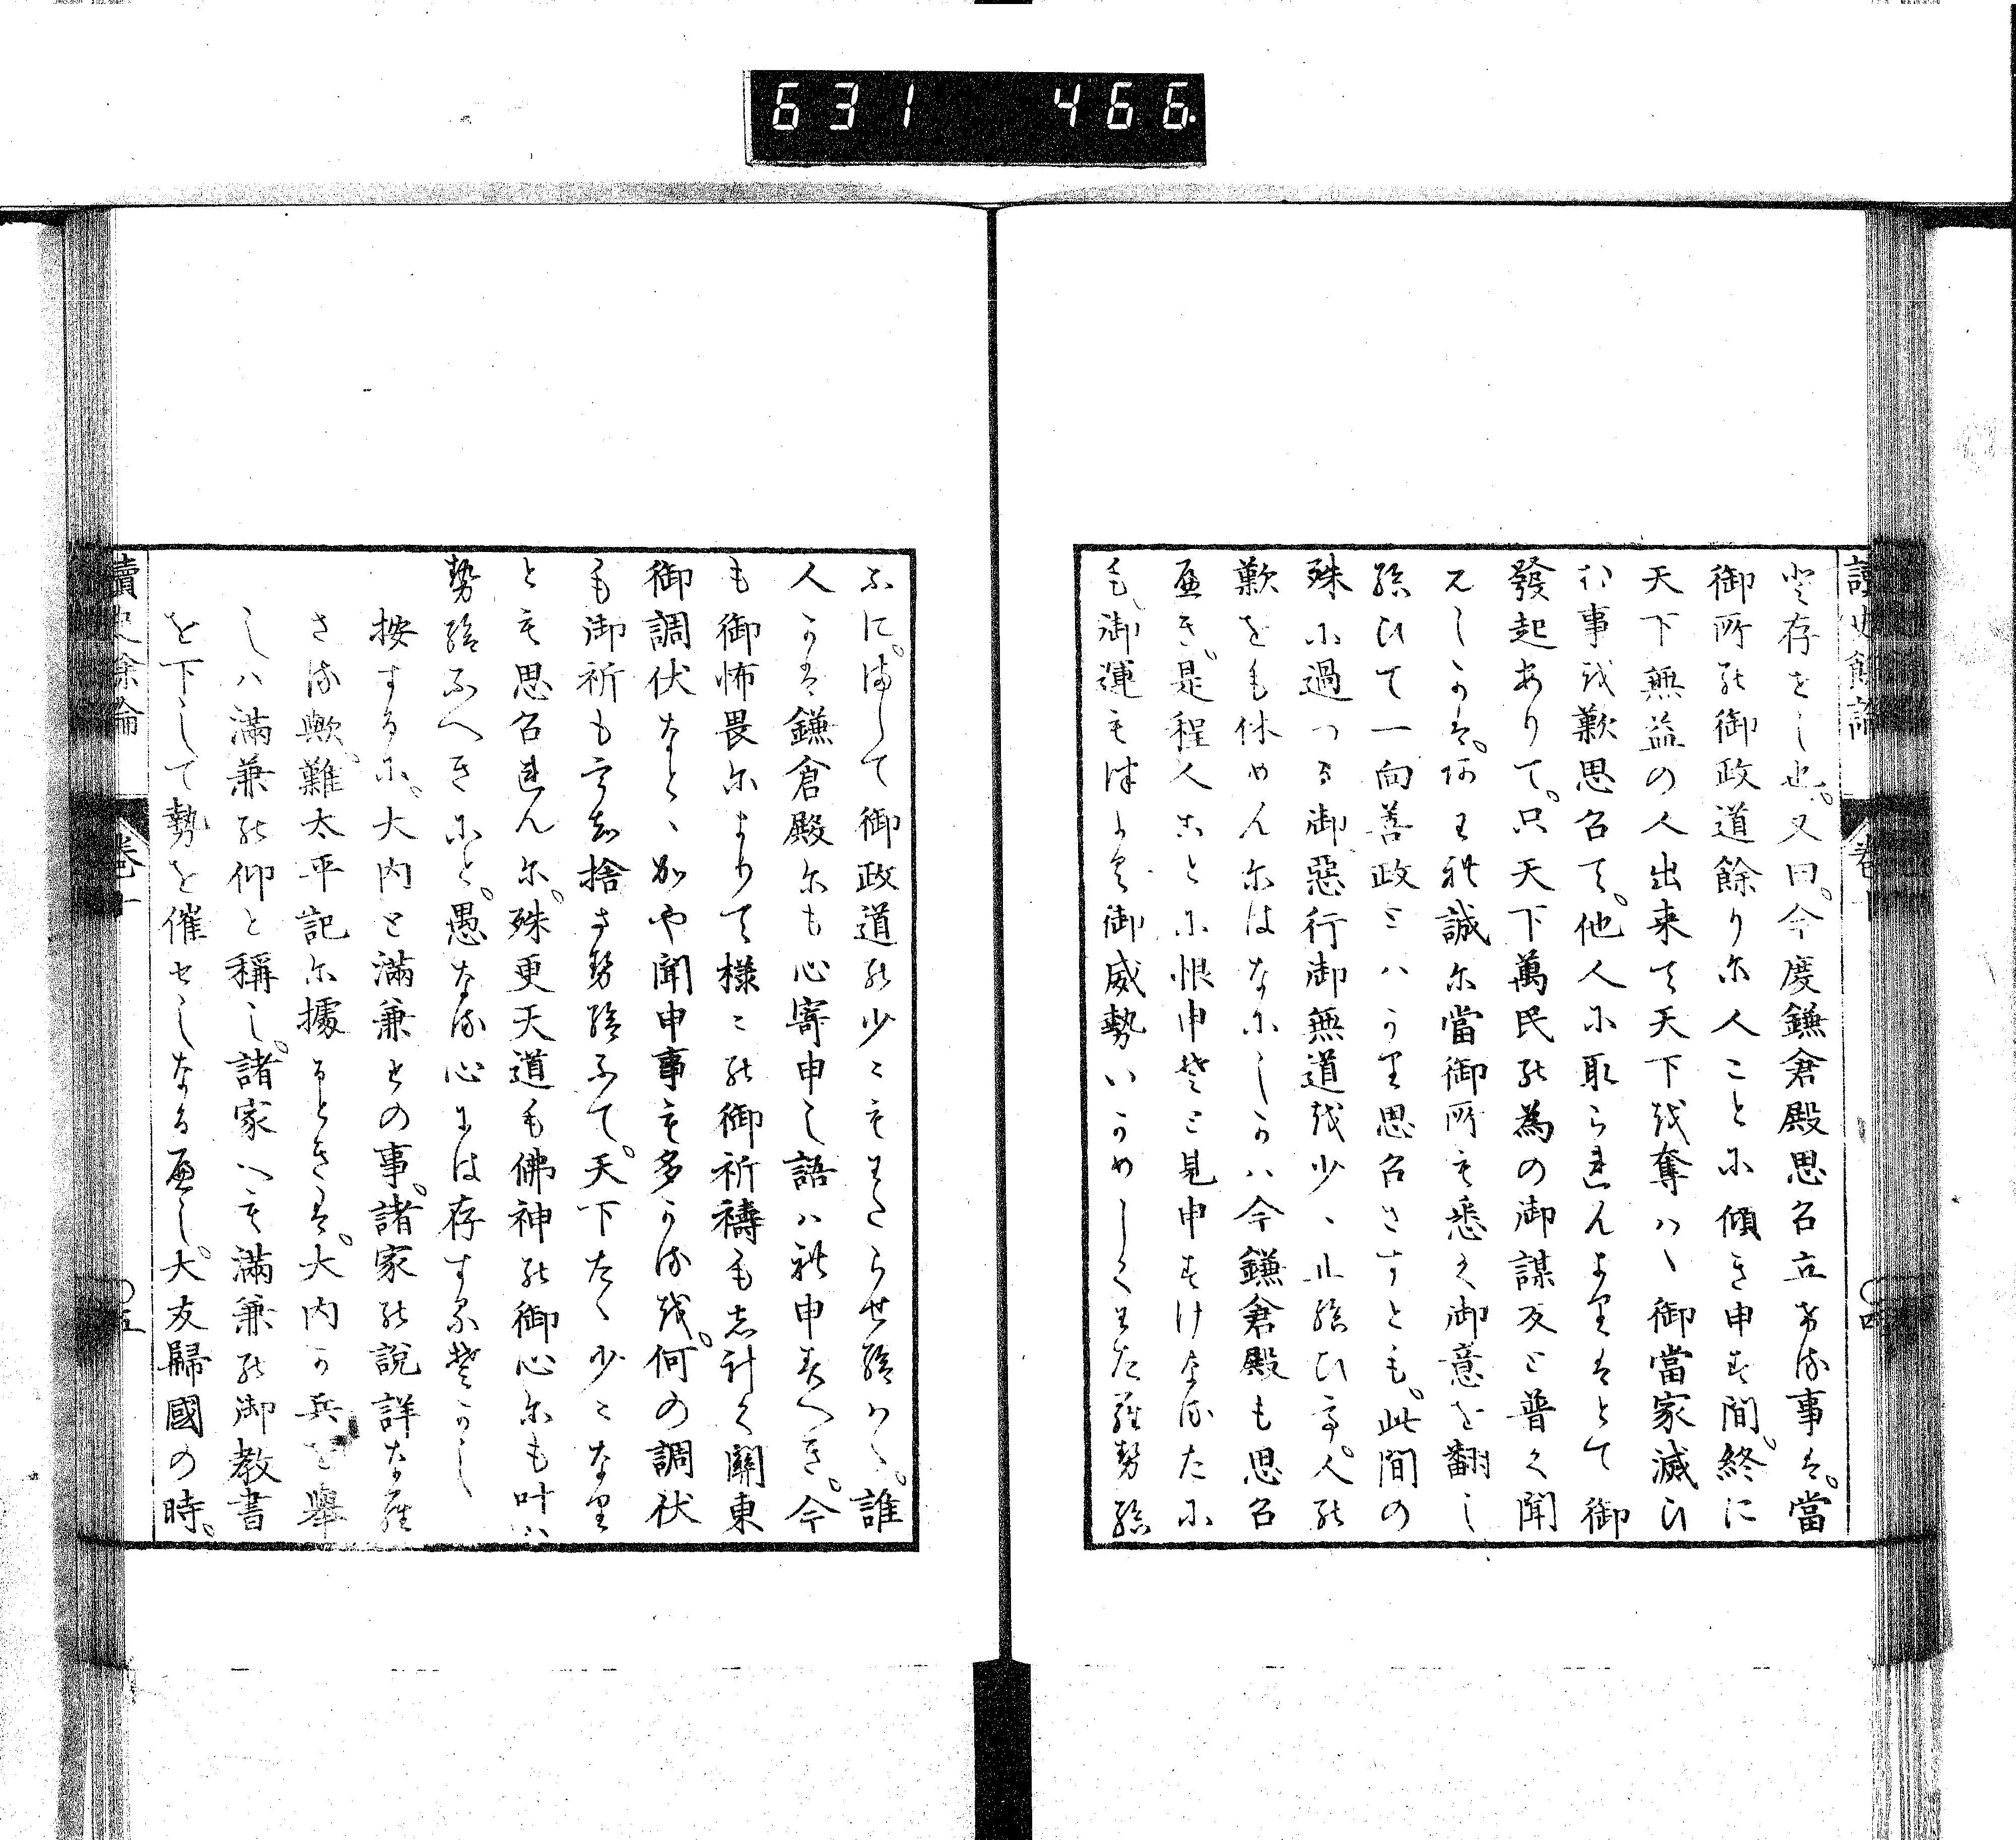 631 466
讀史餘論 卷十 〇四
と存をし也。又曰。今度鎌倉殿思召立ける事は。當
御所の御政道餘りに人ことに傾き申す間。終に
天下無益の人出来て天下を奪はゝ御當家滅ひ
む事を歎思召て。他人に取られんよりはとて御
發起ありて。只天下萬民の為の御謀叛と普く聞
えしかは。あはれ誠に當御所も悉く御意を翻し
給ひて一向善政とはかり思召さすとも。此間の
殊に過つる御惡行御無道を少ゝ止給ひて。人の
歎をも休めんにはなにしかは今鎌倉殿も思召
へき。是程人ことに恨申とみ見申すけなるたに
も、御運もつよく御威勢いかめしくわたらせ給
ふに。まして御政道の少こもわたらせ給はゝ。誰
人かは鎌倉殿にも心寄申し語は れ申すへき。今
も御怖畏によりて様こ の御祈禱もしけく關東
御調伏なとゝかや聞申事も多かるを。何の調伏
も御祈もうち捨させ給ふて。天下たゝ少こなり
とも思召れんに。殊更天道も佛神の御心にも叶は
せ給ふへきにと。愚なる心には存するそかし
按するに。大内と満兼との事。諸家の説詳なら
さる歟。難太平記に據るときは。大内か兵を舉
しハ滿兼の仰と稱し。諸家へも滿兼の御教書
を下して勢を催せしなるへし。大友歸國の時。
讀史餘論 卷十 〇五